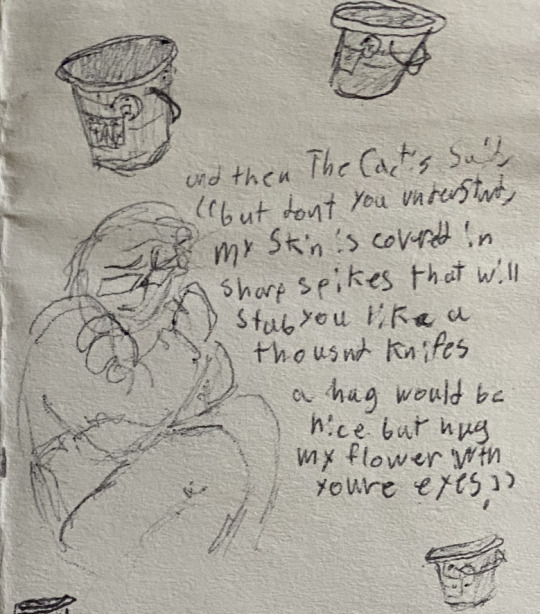 and then The Cactis Said,
"but dont you understand,
my skin is covered in
sharp spikes that will
stab you like a
thousnt knifes
a hug would be
nice but hug
my flower with
youre eyes,"